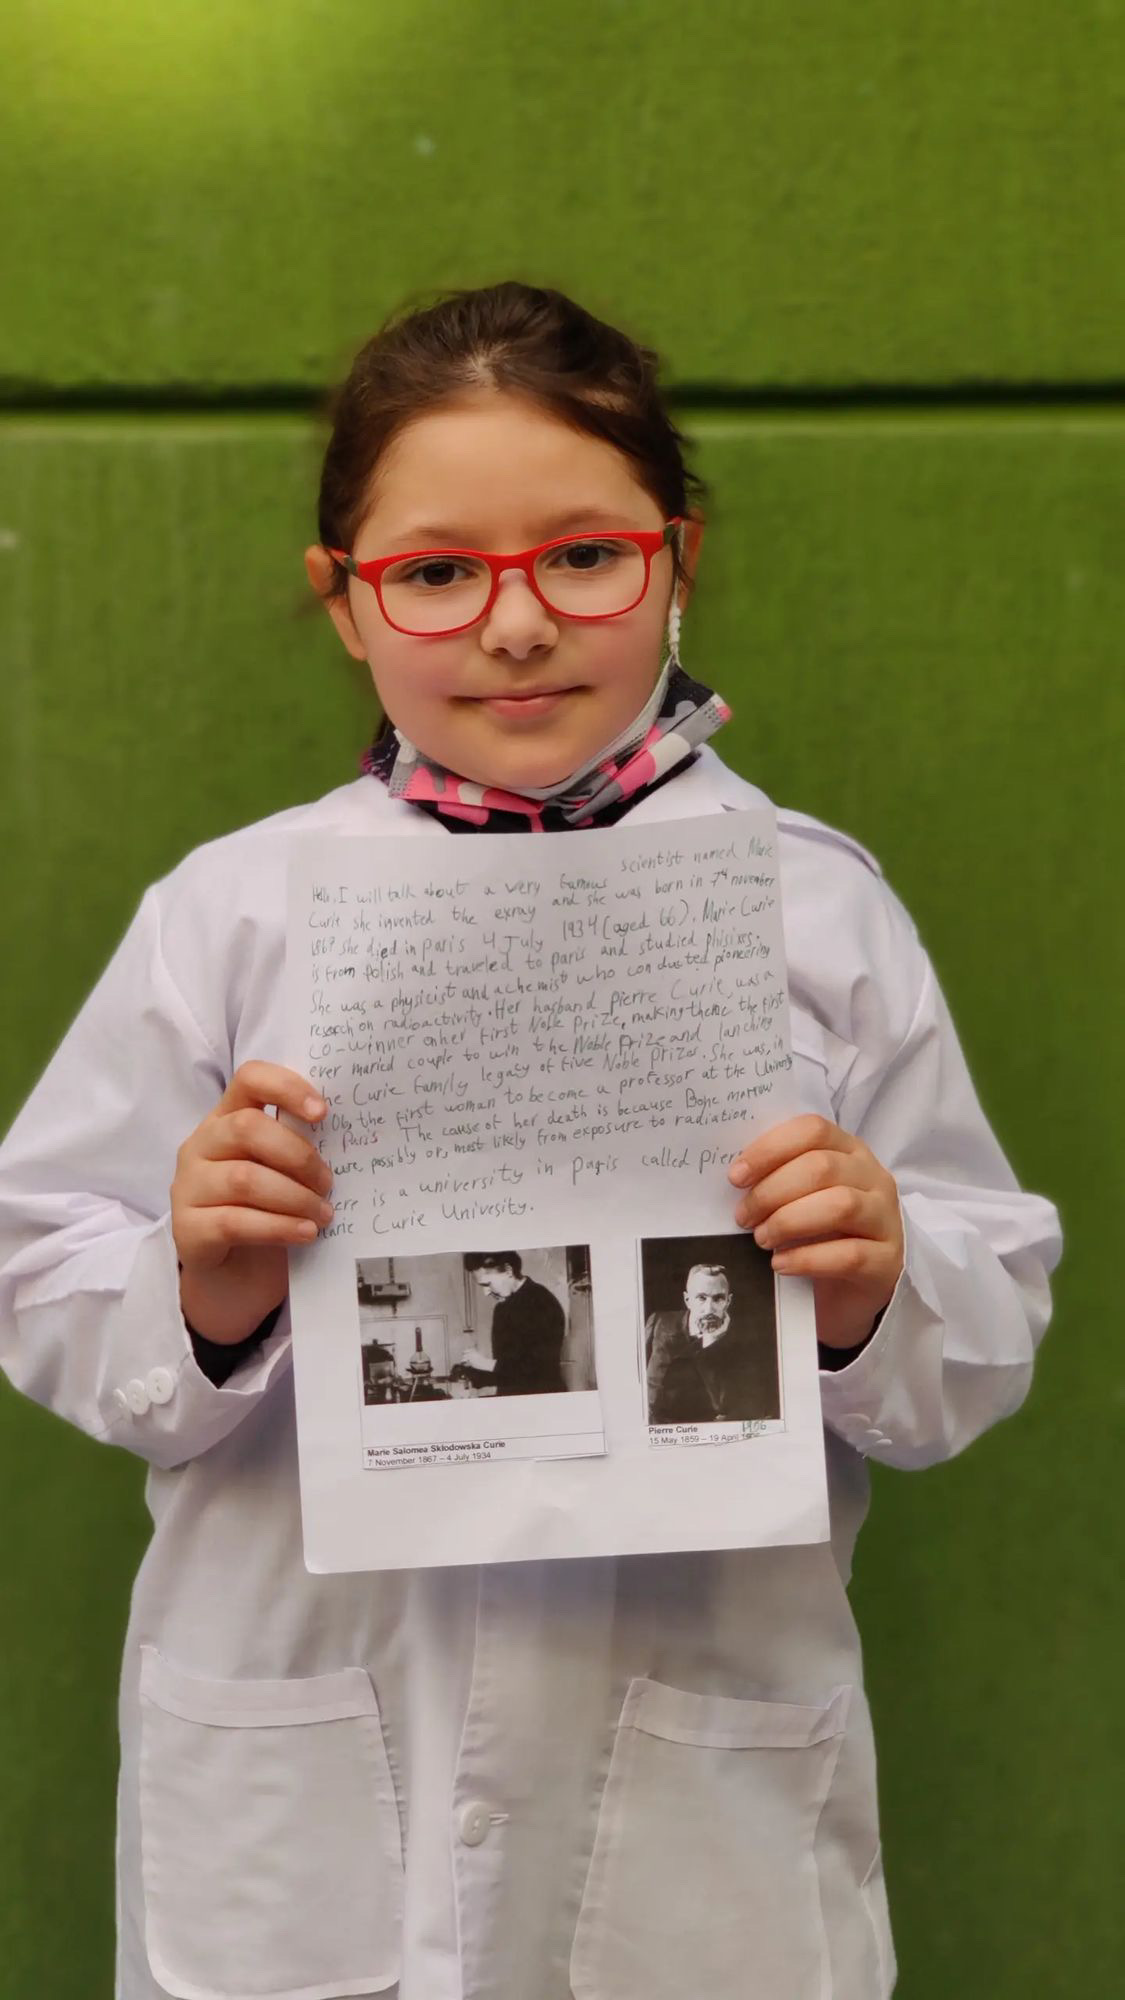 Hello, I will talk about a very famous scientist named Marie
Curie she invented the exray and she was born in 7th november
1867. She died in paris 4 July 1934 (aged 66). Marie Curie
is from polish and traveled to paris and studied phisixs.
She was a physicist and a chemist who conducted pioneering
research on radioactivity. Her hasband pierre Curie, was a
co-winner onher first Noble prize, making theme the first
ever maried couple to win the Noble Prize and lanching
the Curie family legacy of five Noble prizes. She was, in
the first woman to become a professor at the University
of Paris The cause of her death is because Bone marrow
possibly or, most likely from exposure to radiation.
here is a university in paris called pierr
Marie Curie Univesity.
Marie Salomea Skłodowska Curie
7 November 1867 – 4 July 1934
Pierre Curie
15 May 1859 – 19 April 1906